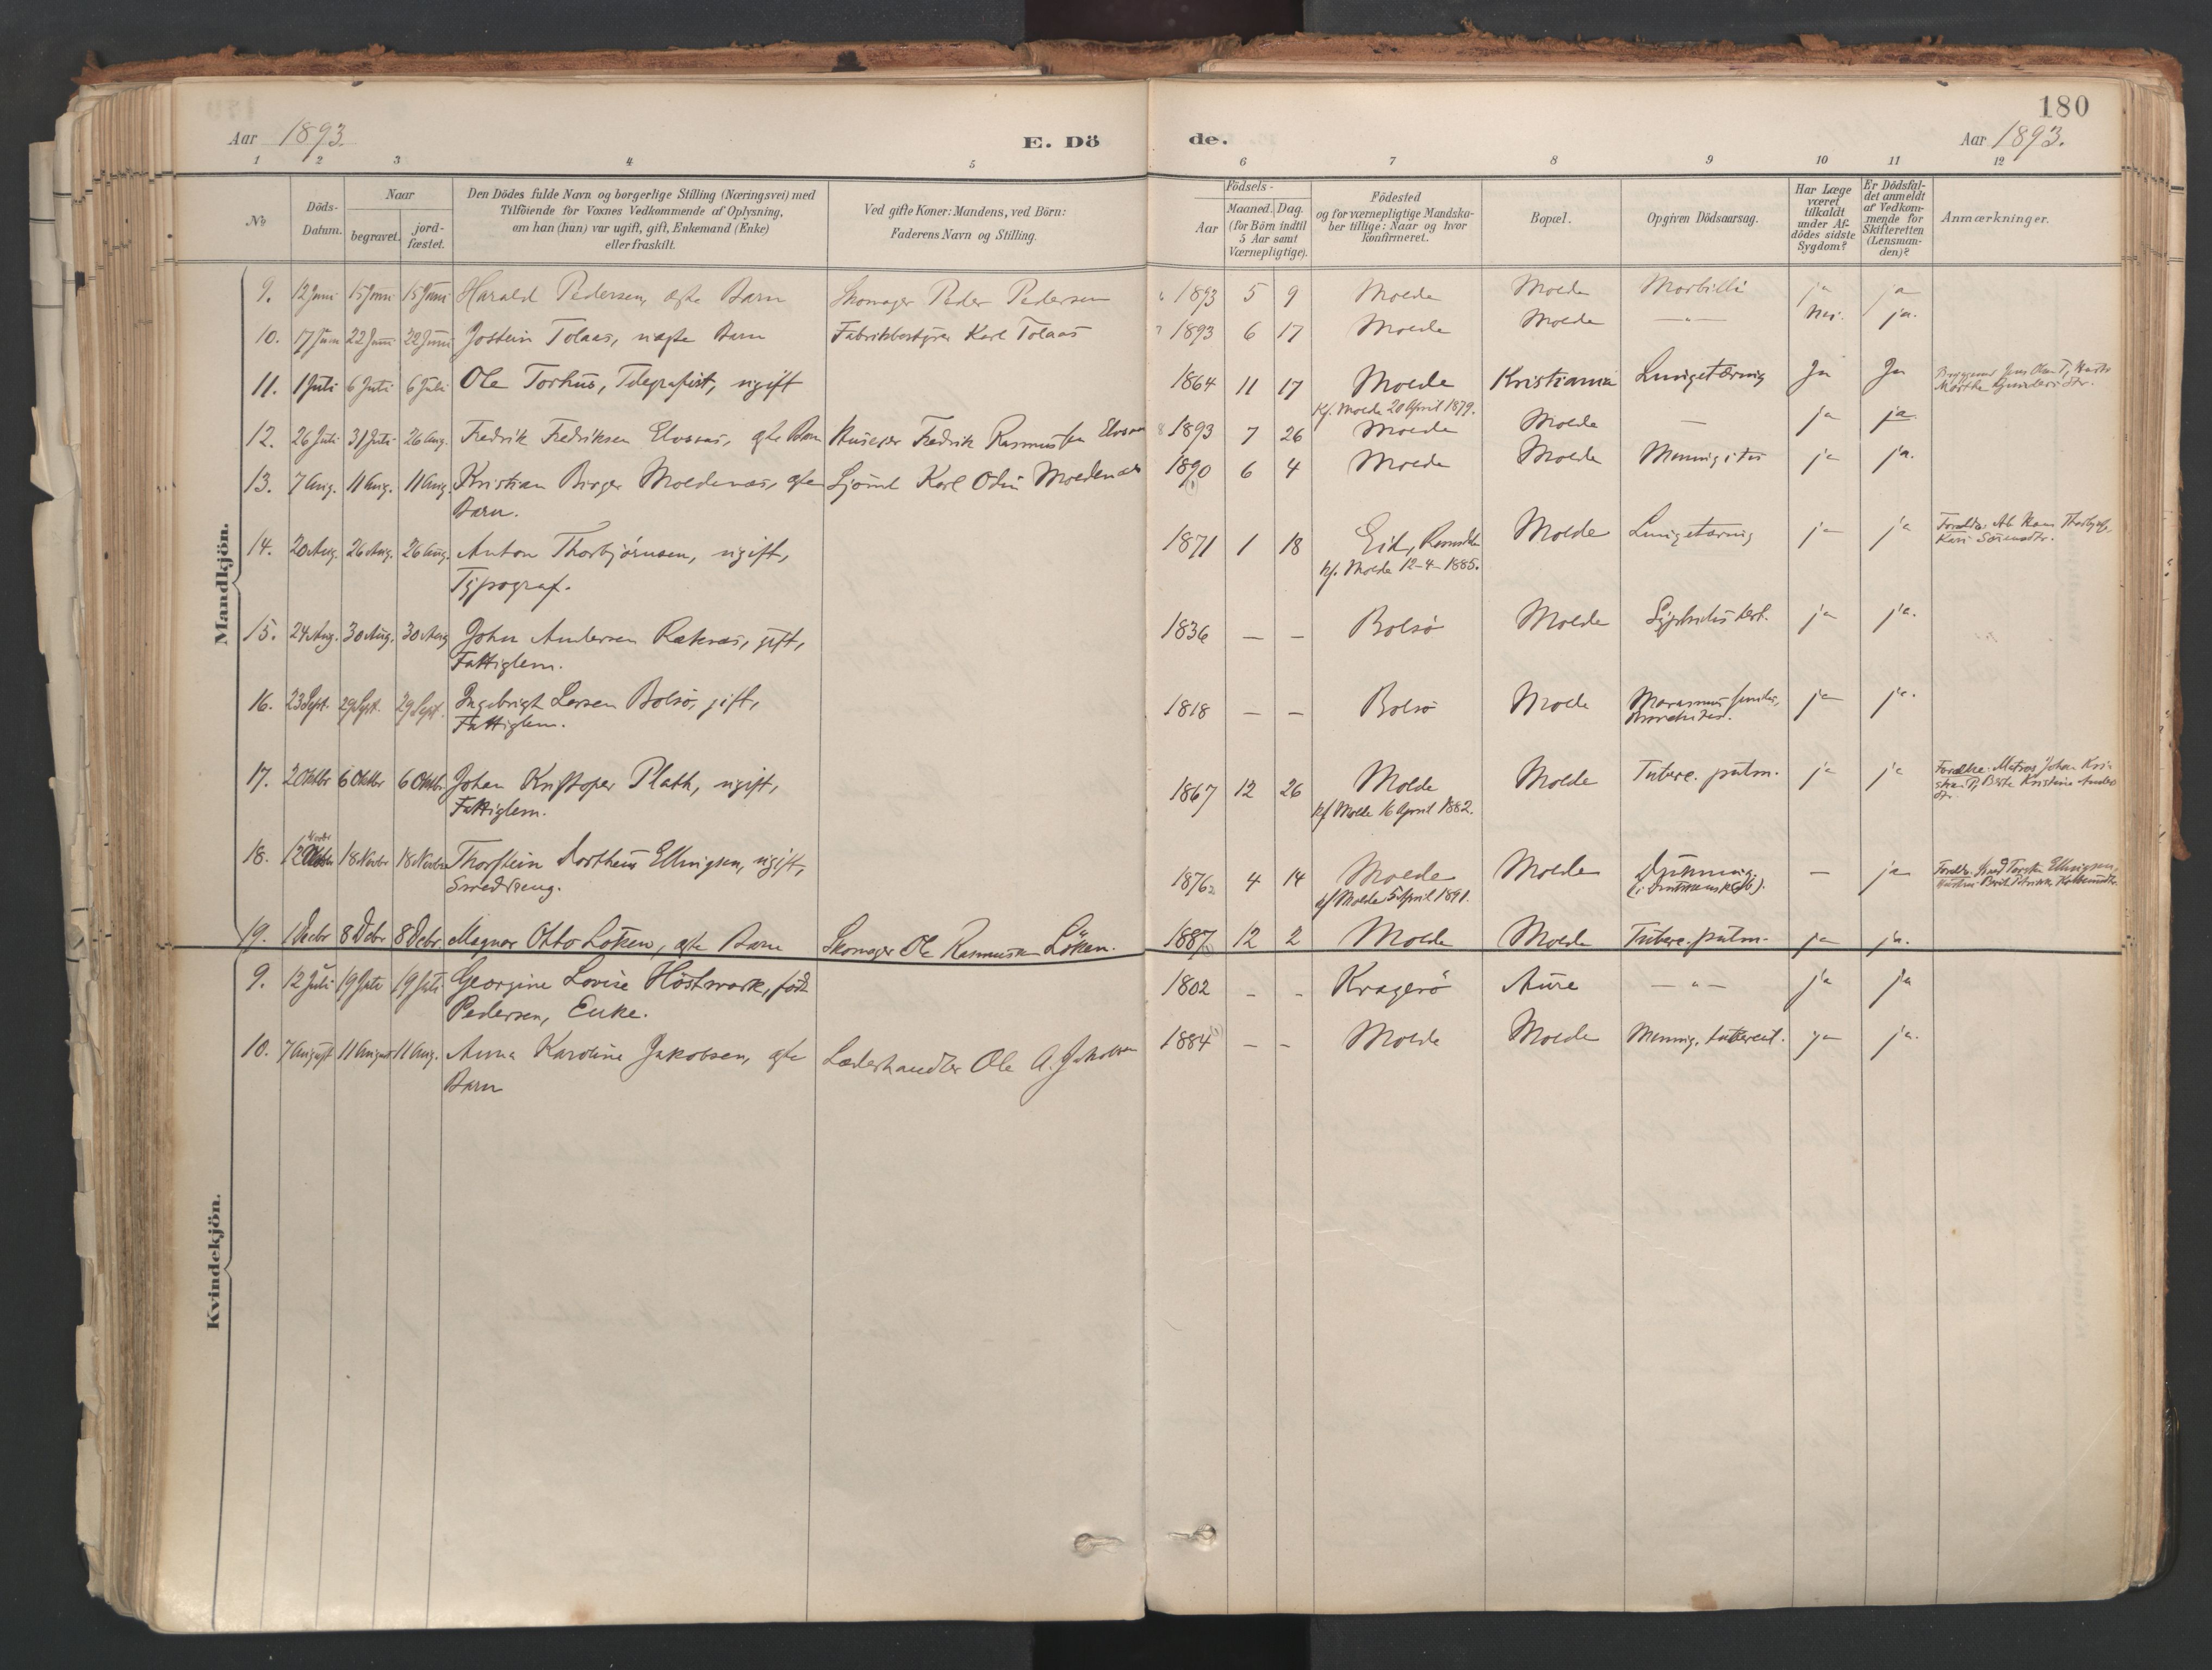 180
Aar 1893.
E. Dö
de.
Aar 1893.
1 2 3 4 5 6 7 8 9 10 11 12
No
Döds-Datum.
Naar
begravet.
jord-fæstet.
Den Dödes fulde Navn og borgerlige Stilling (Næringsvei) med
Tilföiende for Voxnes Vedkommende af Oplysning,
om han (hun) var ugift, gift, Enkemand (Enke)
eller fraskilt.
Ved gifte Koner: Mandens, ved Börn:
Faderens Navn og Stilling.
Födsels-
Aar
Maaned. Dag.
(for Börn indtil
5 Aar samt
Værnepligtige).
Födested
og for værnepligtige Mandska-
ber tillige: Naar og hvor
konfirmeret.
Bopæl.
Opgiven Dödsaarsag.
Har Læge
været
tilkaldt
under Af-
dödes sidste
Sygdom?
Er Dödsfal-
det anmeldt
af Vedkom-
mende for
Skifteretten
(Lensman-
den)?
Anmærkninger.
Mandkjön.
9. 12 Juni 15 Juni 15 Juni Harald Pedersen, ægte Barn Skomager Peder Pedersen 1893 5 9 Molde Molde Morbilli ja ja
10. 17 Juni 22 Juni 22 Juni Jostein Tolaas, uægte Barn Fabrikbestyrer Karl Tolaas 1893 6 17 Molde Molde — " — Nei. ja.
11. 1 Juli 6 Juli 6 Juli Ole Torhus, Telegrafist, ugift 1864 11 17 Molde Kristiania Lungetæring Ja Ja
Kf. Molde 20 April 1879.
12. 26 Juli 31 Juli 26 Aug. Fredrik Fredriksen Elvsaas, ægte Barn Fredrik Rasmussen 1893 7 26 Molde Molde — ja ja
13. 7 Aug. 11 Aug. 11 Aug. Kristian Birger Moldenæs, ægte Sjömd Karl Odin Moldenæs 1890 6 4 Molde Molde Meningitis ja ja.
Barn.
14. 20 Aug. 26 Aug. 26 Aug. Anton Thorbjørnsen, ugift, 1871 1 18 Eid, Romsdalen Molde Lungetæring ja ja
Typograf.
kf. Molde 12-4-1885.
15. 24 Aug. 30 Aug. 30 Aug John Andersen Røknæs, gift, 1836 — — Bolsö Molde ja ja.
Fattiglem.
16. 23 Sept. 29 Sept. 29 Sept. Ingebrigt Larsen Bolsö, gift, 1818 — — Bolsö Molde Marasmus senilis, ja ja.
Fattiglem.
17. 2 Oktbr 6 Oktbr 6 Oktbr Johan Kristoper Plath, ugift, 1867 12 26 Molde Molde Tuberc. pulm. ja ja Forældre: Matros Johan Kri-
stian P, Kristine
Fattiglem.
kf Molde 16 April 1882.
18. 12 Novbr 18 Novbr 18 Novbr Thorstein Dortheus Ellingsen, ugift, 1876 4 14 Molde Molde Drukning. — ja
Smeddreng.
kf Molde 5 April 1891.
19. 1 Decbr 8 Dcbr 8 Dcbr Magnar Otto Löken, ægte Barn Skomager Ole Rasmussen Löken. 1887 12 2 Molde Molde Tuberc. pulm. ja ja.
Kvindekjön.
9. 12 Juli 19 Juli 19 Juli Georgine Lovise Höstmark, född 1802 - - Kragerö Aure — " — ja ja
Pedersen, Enke.
10. 7 August 11 August 11 Aug. Anna Karoline Jakobsen, ægte Læderhandler Ole A. Jakobsen 1884 — — Molde Molde Mening. tubercul. ja ja.
Barn